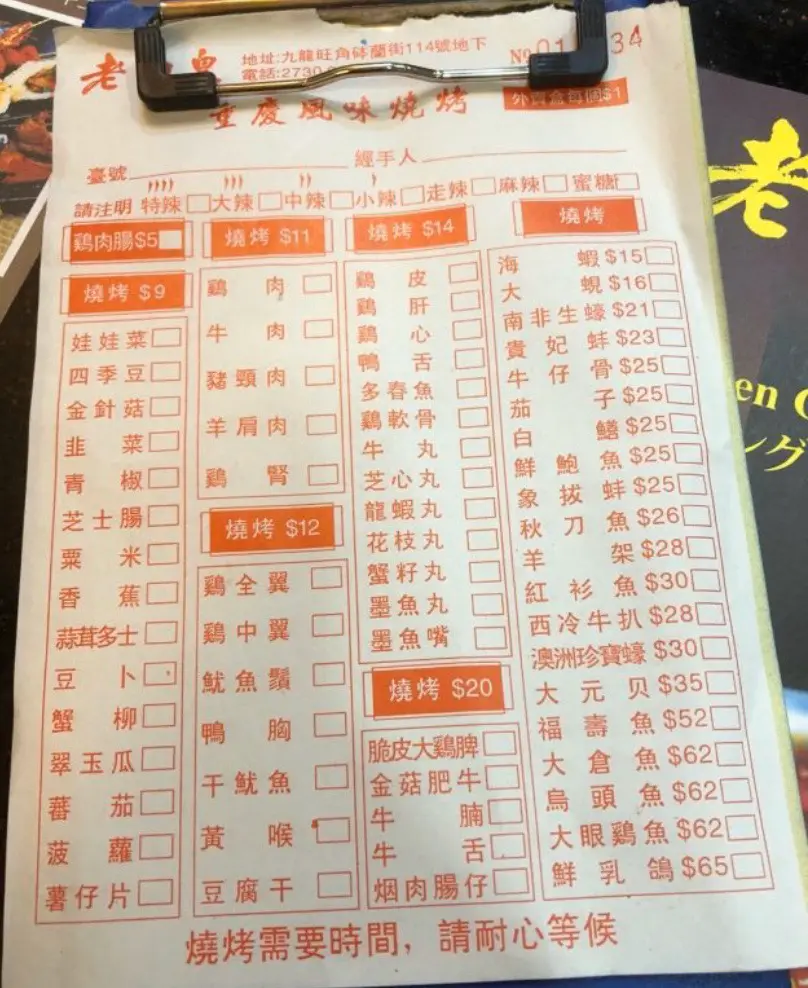 老
地址:九龍旺角砵蘭街114號地下
電話:2730
No 01 34
重慶風味燒烤
外賣盒每個$1
臺號 經手人
請注明 特辣 大辣 中辣 小辣 走辣 麻辣 蜜糖
鷄肉腸$5
燒烤 $9
娃娃菜
四季豆
金針菇
韭菜
青椒
芝士腸
粟米
香蕉
蒜茸多士
豆卜
蟹柳
翠玉瓜
蕃茄
菠蘿
薯仔片
燒烤 $11
鷄肉
牛肉
豬頸肉
羊肩肉
鷄腎
燒烤 $12
鷄全翼
鷄中翼
魷魚鬚
鴨胸
干魷魚
黃喉
豆腐干
燒烤 $14
鷄皮
鷄肝
鷄心
鴨舌
多春魚
鷄軟骨
牛丸
芝心丸
龍蝦丸
花枝丸
蟹籽丸
墨魚丸
墨魚嘴
燒烤 $20
脆皮大鷄髀
金菇肥牛
牛腩
牛舌
烟肉腸仔
燒烤
海蝦$15
大蜆$16
南非生蠔$21
貴妃蚌$23
牛仔骨$25
茄子$25
白鱔$25
鮮鮑魚$25
象拔蚌$25
秋刀魚$26
羊架$28
紅衫魚$30
西冷牛扒$28
澳洲珍寶蠔$30
大元贝$35
福壽魚$52
大倉魚$62
烏頭魚$62
大眼鷄魚$62
鮮乳鴿$65
燒烤需要時間，請耐心等候
老
en
ング